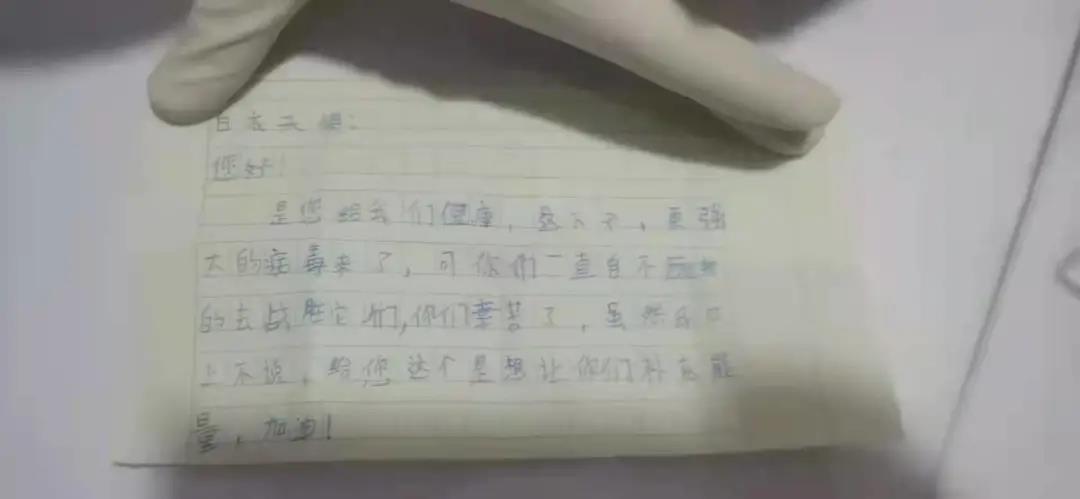 白衣天使：
您好！
是您给我们健康，这不，更强
大的病毒来了，可你们一直自不
的去战胜它们，你们辛苦了，虽然我口
上不说，给您这个是想让你们补充能
量，加油！